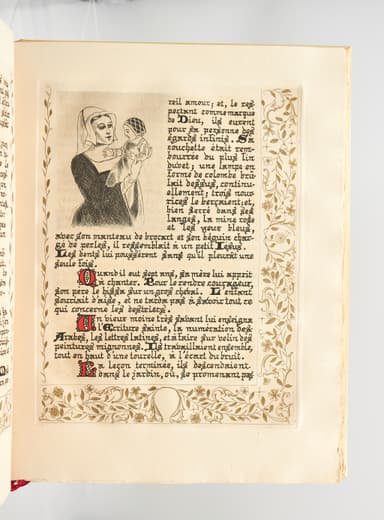 reil amour; et, le res-
pectant comme marqué
de Dieu, ils eurent
pour sa personne des
égards infinis. Sa
couchette était rem-
bourrée du plus fin
duvet; une lampe en
forme de colombe brû-
lait dessus, continu-
ellement; trois nour-
rices le berçaient; et,
bien serré dans ses
langes, la mine rose
et les yeux bleus,
avec son manteau de brocart et son béguin char-
gé de perles, il ressemblait à un petit Jésus.
Les dents lui poussèrent sans qu'il pleurât une
seule fois.
Quand il eut sept ans, sa mère lui apprit
à chanter. Pour le rendre courageux,
son père le hissa sur un gros cheval. L'enfant
souriait d'aise, et ne tarda pas à savoir tout ce
qui concerne les destriers.
Un vieux moine très savant lui enseigna
l'Écriture sainte, la numération des
Arabes, les lettres latines, et à faire sur vélin des
peintures mignonnes. Ils travaillaient ensemble,
tout en haut d'une tourelle, à l'écart du bruit.
La leçon terminée, ils descendaient
dans le jardin, où, se promenant pas